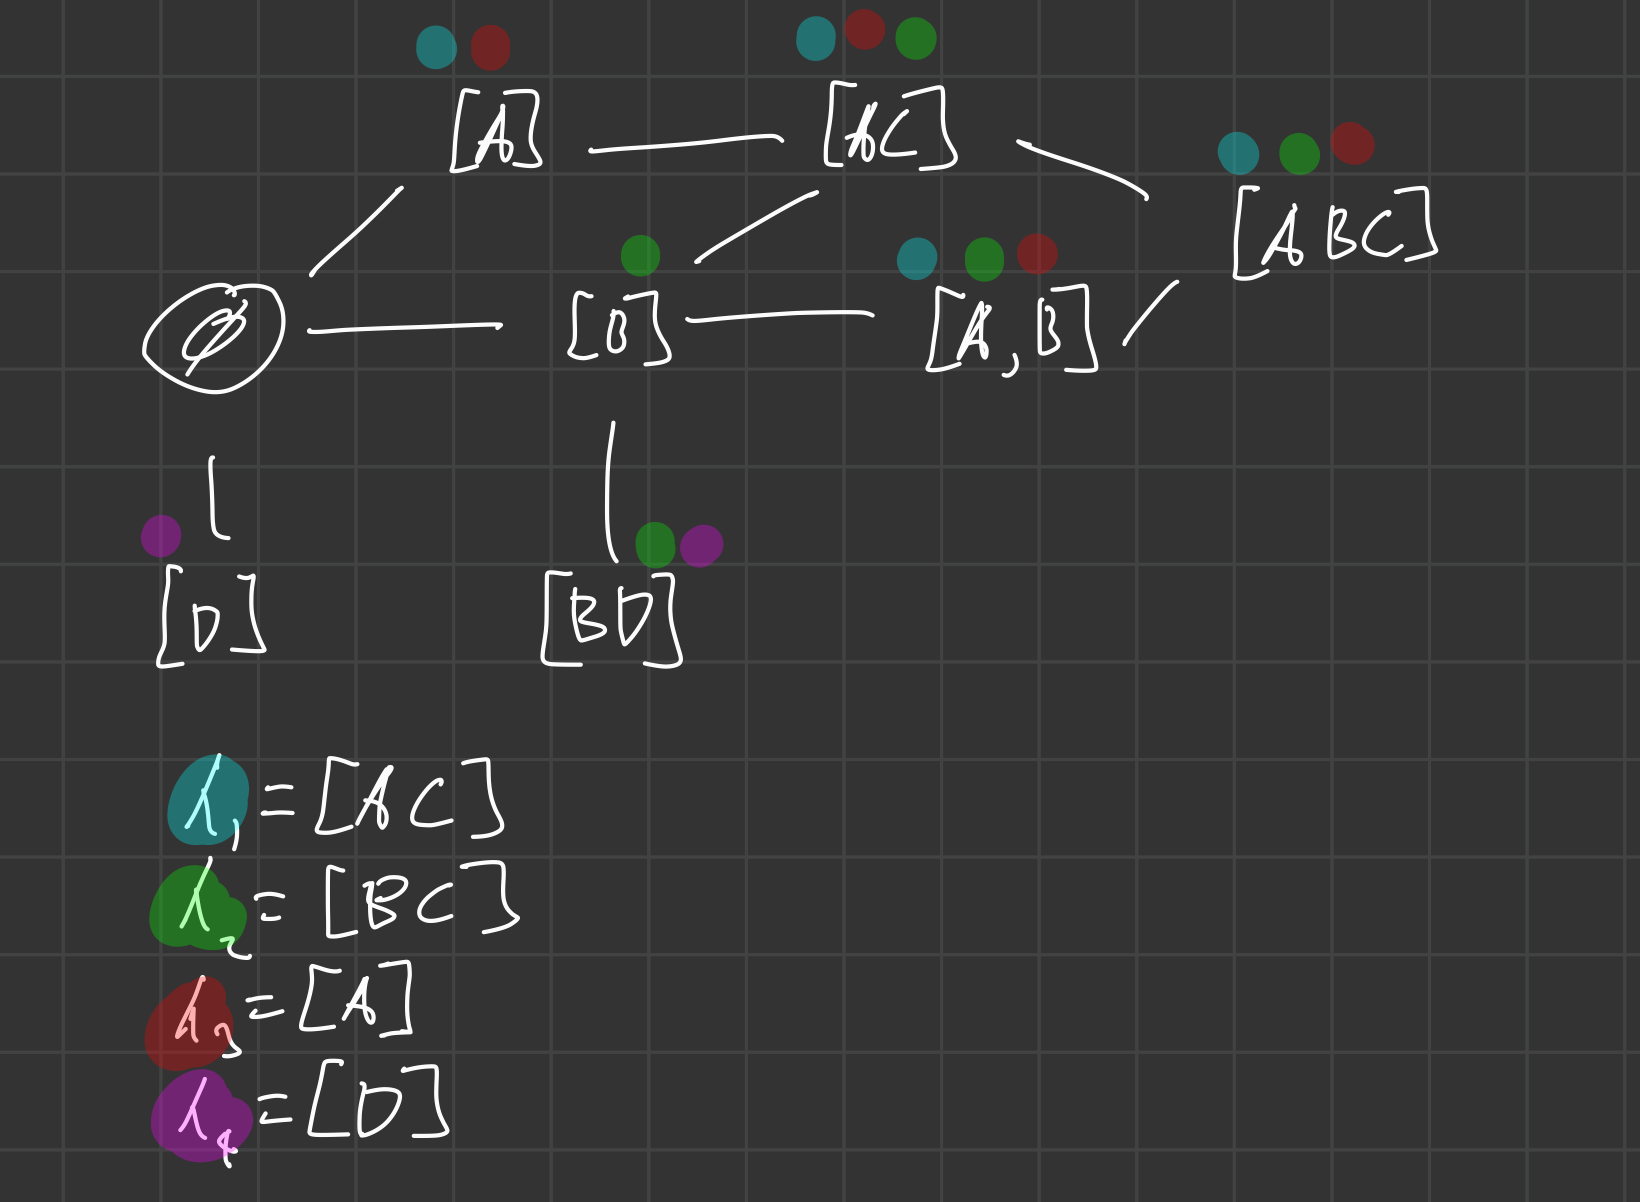 [A] [AC]
[ABC]
∅ [B] [A,B]
[D] [BD]
λ₁ = [AC]
λ₂ = [BC]
λ₃ = [A]
λ₄ = [D]